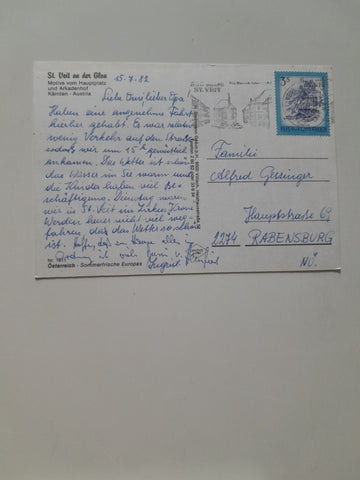 St. Veit an der Glan
Motive vom Hauptplatz
und Arkadenhof
Kärnten - Austria
15.7.82
Liebe Omi, lieber Opa
Haben eine angenehme Fahrt
hierher gehabt. Es war sehr
wenig Verkehr auf den Straßen
sodass wir um 15h gemütlich
ankamen. Das Wetter ist schön
das Wasser im See warm und
die Kinder haben viel Be-
schäftigung. Dienstag waren
wir in St. Veit im Zirkus Krone
Werden heuer nicht viel weg-
fahren, da das Wetter so schön
ist. Hoffe, das zu Hause alles in
Ordnung ist
Nr. 1611
Österreich - Sommerfrische Europas
ST. VEIT
3 S
REPUBLIK ÖSTERREICH
Familie
Alfred
Hauptstraße 69
2274 RABENSBURG
NÖ.